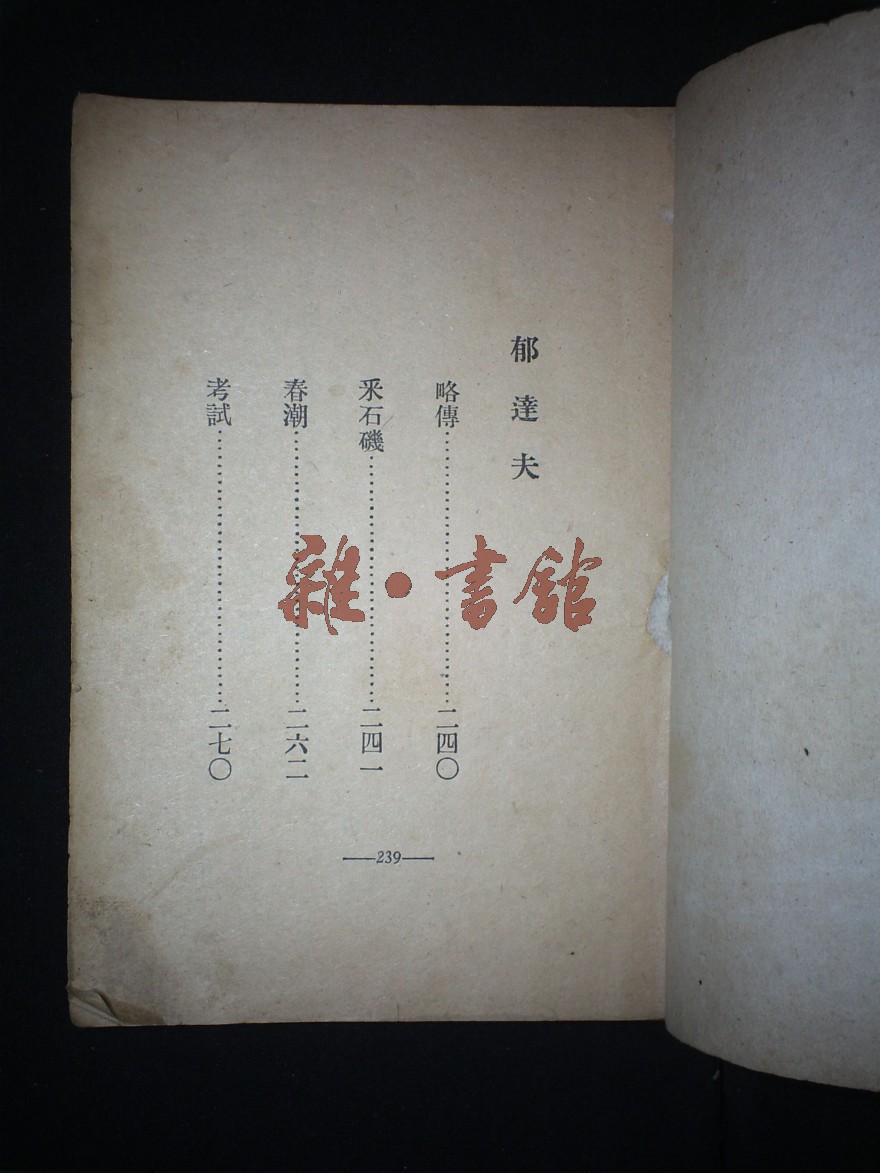 郁達夫
略傳……二四〇
釆石磯……二四一
春潮……二六二
考試……二七〇
—239—
雜·書館